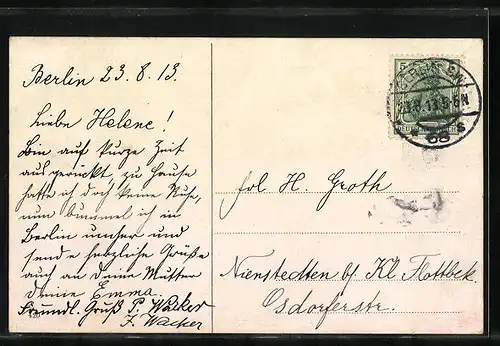 Berlin 23.8.13.
Liebe Helene!
Bin auf kurze Zeit
ausgerückt, zu Hause
hatte ich doch keine Ruhe,
nun bummel ich in
Berlin umher und
sende herzliche Grüße
auch an deine Mutter
deine Emma.
Freundl. Gruß P. Wacker
F. Wacker
frl H. Groth
Nienstedten b/ Kl Flottbek
Osdorferstr.